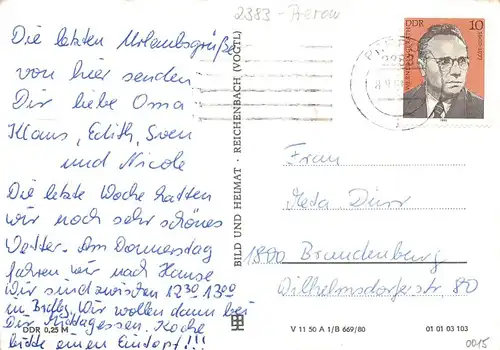 2383-Prerow
Die letzten Urlaubsgrüße
von hier senden
Dir liebe Oma
Klaus, Edith, Sven
und Nicole
Die letzte Woche hatten
wir noch sehr schönes
Wetter. Am Donnerstag
fahren wir nach Hause
Wir sind zwischen 12³⁰ 13⁰⁰
in Brdbg. Wir wollen dann bei
Dir Mittagessen. Koche
bitte einen Eintopf!!!
DDR 0,25 M
BILD UND HEIMAT · REICHENBACH (VOGTL)
DDR 10
Frau
Meta Durr
1800 Brandenburg
Wilhelmsdorferstr 80
V 11 50 A 1/B 669/80
01 01 03 103
0015